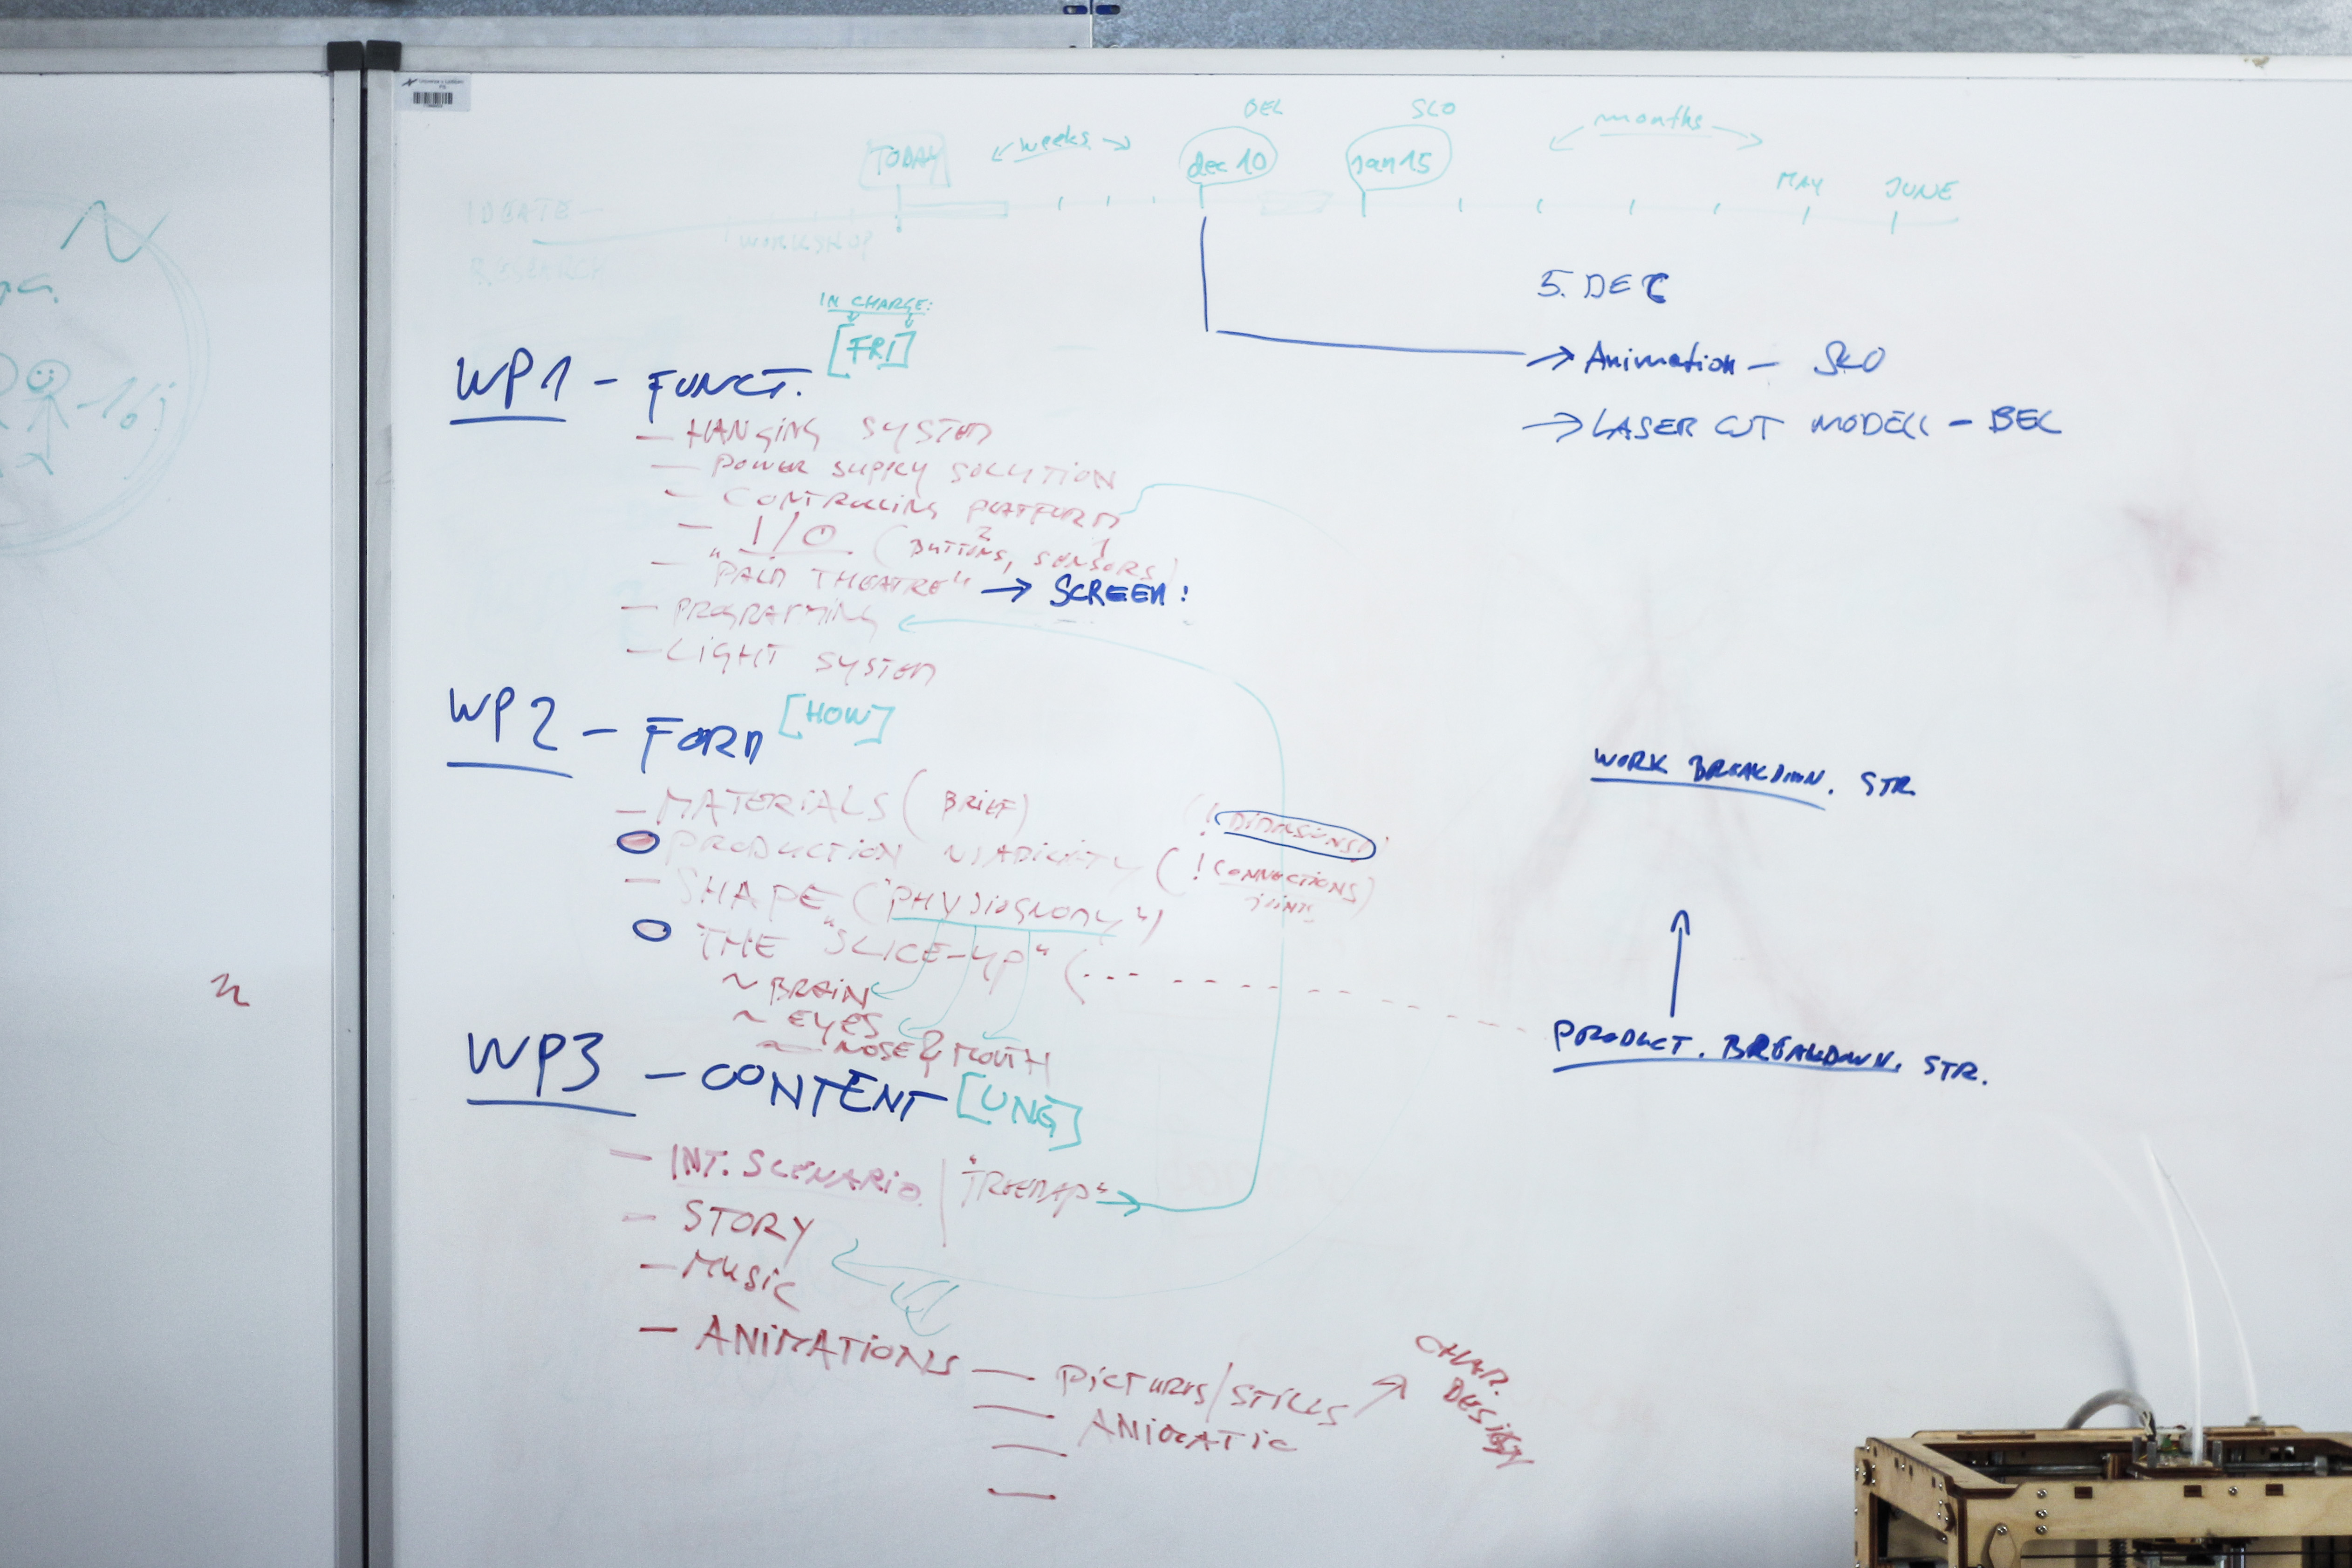 BEL SLO
TODAY ← weeks → dec 10 jan 15 ← months →
MAY JUNE
IDEATE —
WORKSHOP
RESEARCH
5. DEC
IN CHARGE:
[FRI]
→ Animation — SLO
→ LASER CUT MODELL — BEL
WP1 — FUNCT.
— HANGING SYSTEM
— POWER SUPPLY SOLUTION
— CONTROLLING PLATFORM
— I/O (BUTTONS, SENSORS)
— "PALM THEATRE" → SCREEN!
— PROGRAMMING
— LIGHT SYSTEM
WP2 — FORM [HOW]
WORK BREAKDOWN. STR.
— MATERIALS (BRIEF)
(! DIMENSIONS!)
PRODUCTION VIABILITY (! CONNECTIONS)
JOINTS
— SHAPE ("PHYSIOGNOMY")
THE "SLICE-UP" (...
~ BRAIN
~ EYES
~ NOSE & MOUTH
PRODUCT. BREAKDOWN. STR.
WP3 — CONTENT [UNG]
— INT. SCENARIO | "TREEMAP" →
— STORY
— MUSIC
— ANIMATIONS — PICTURES/STILLS → CHAR. DESIGN
— ANIMATIC